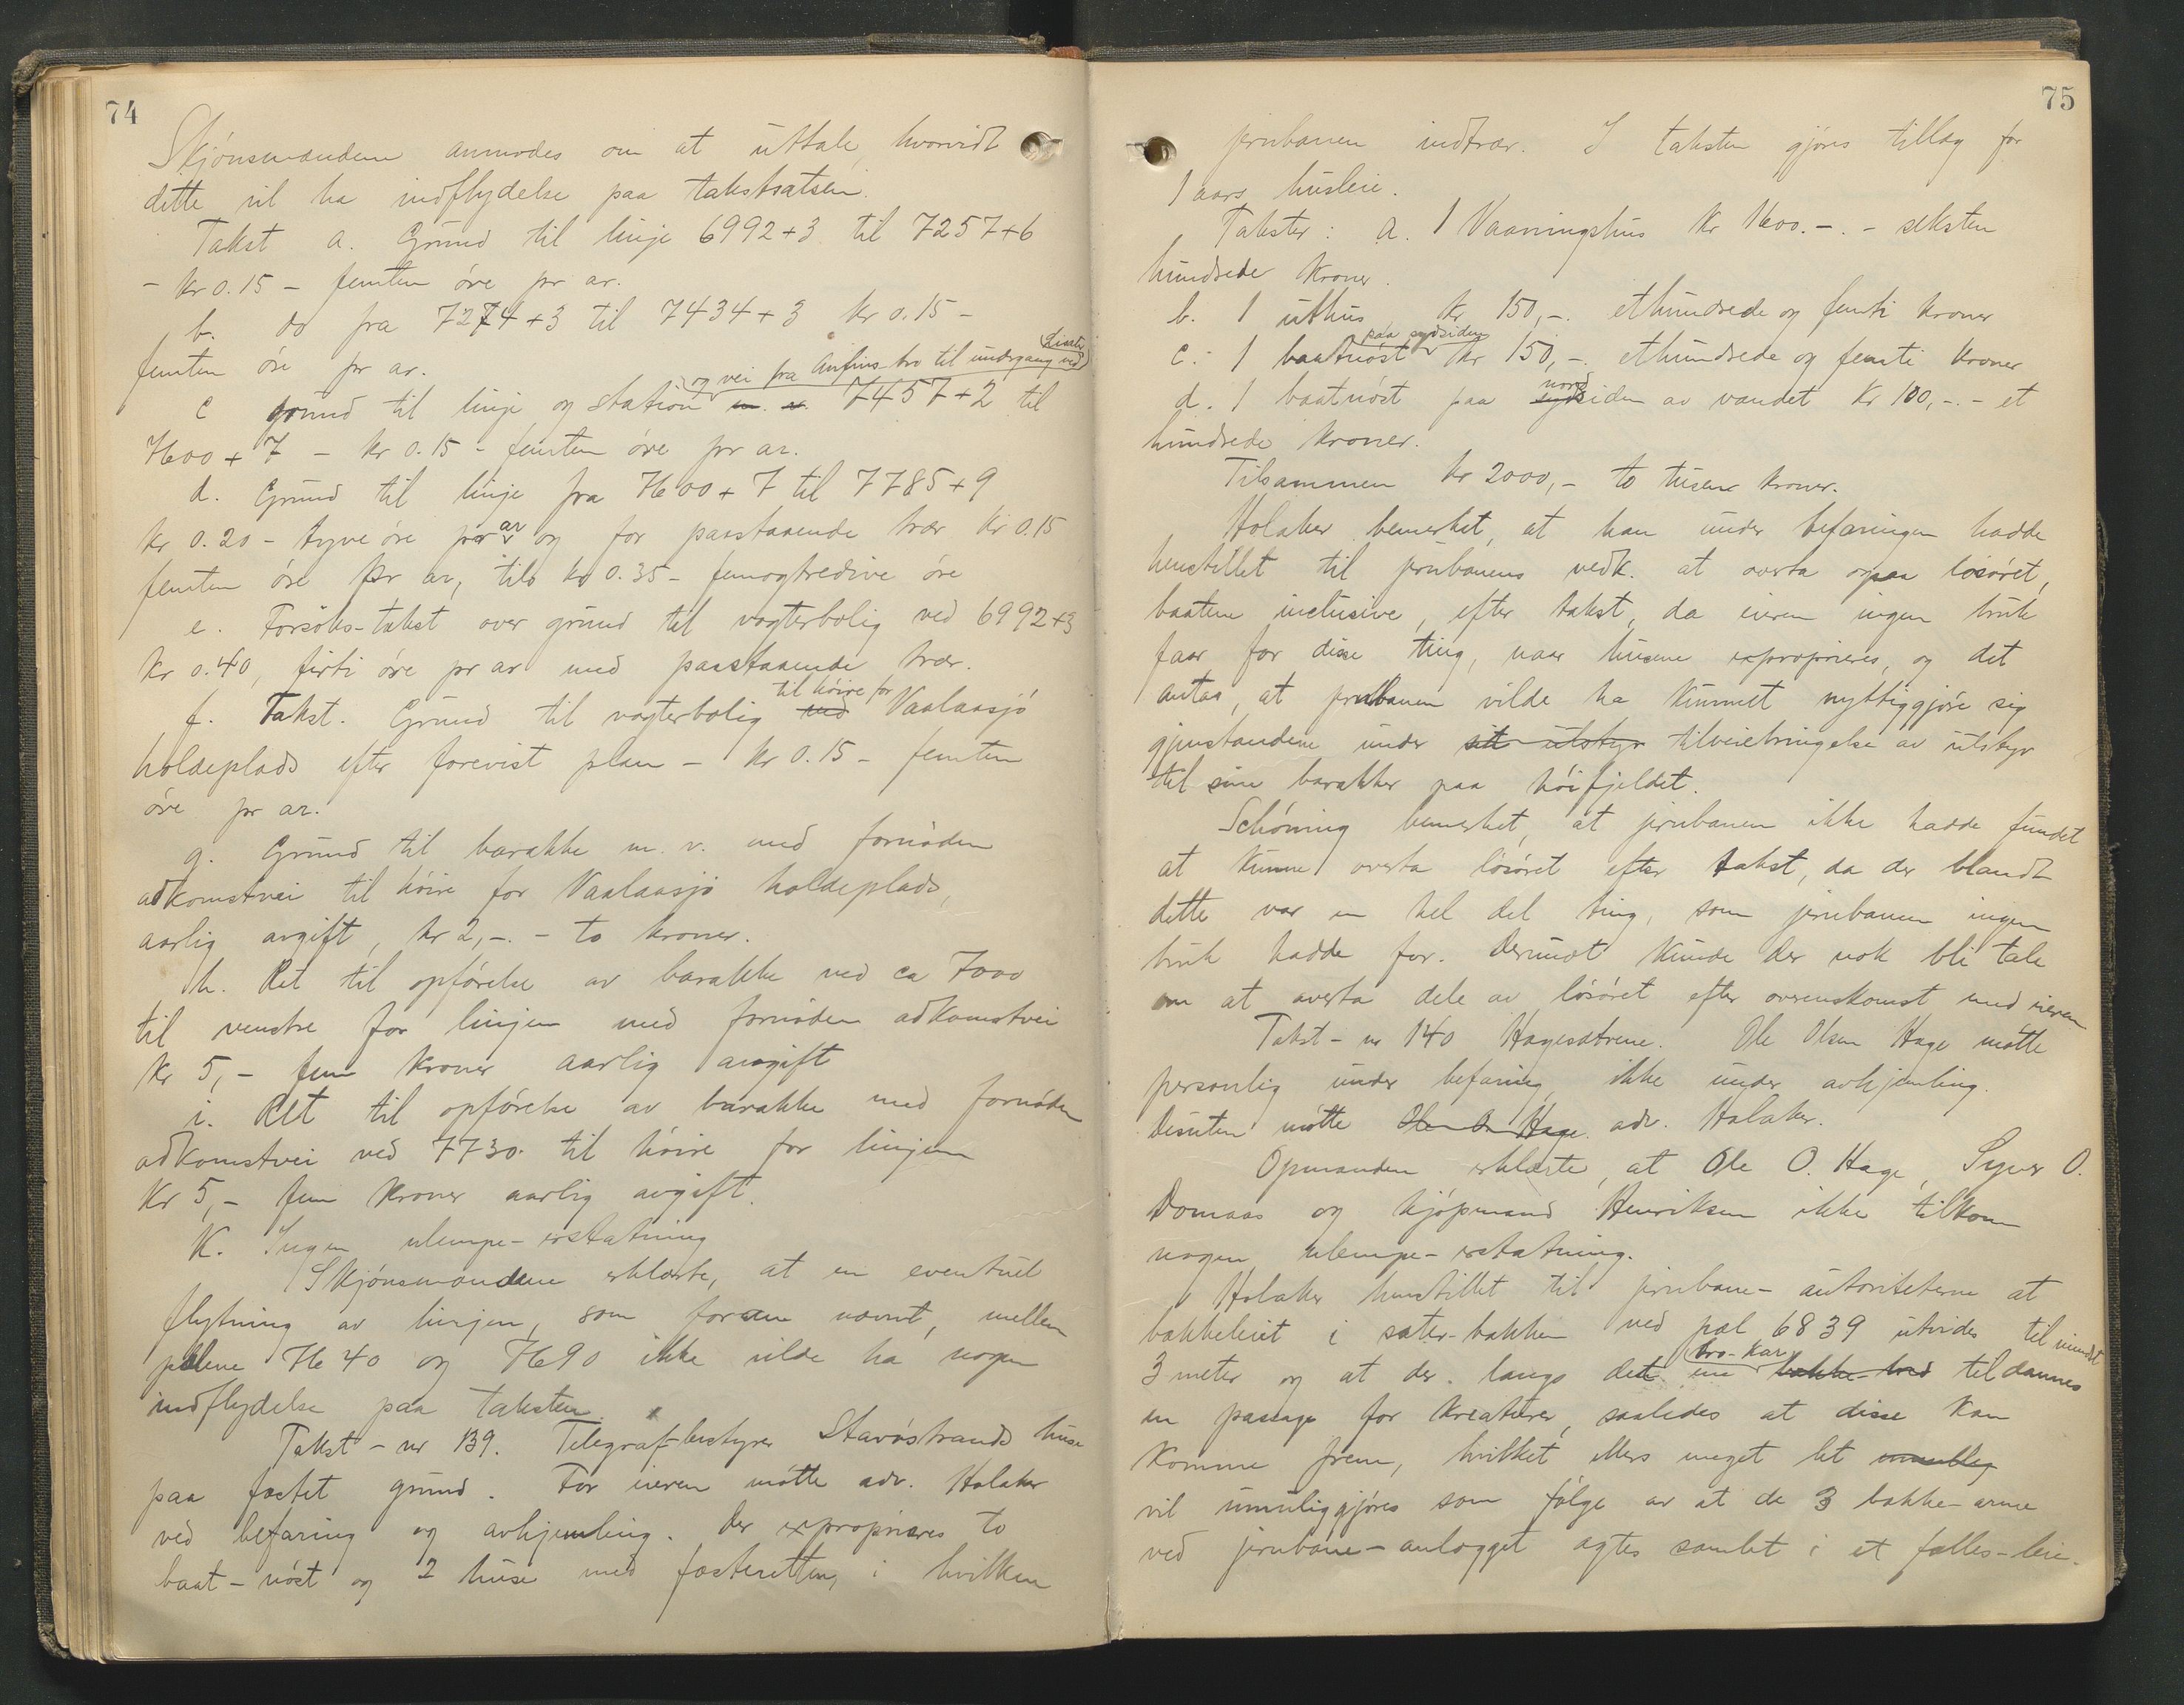 74
Skjönsmændene anmodes om at uttale, hvorvidt
dette vil ha indflydelse paa takstsatsen.
Takst a. Grund til linje 6992+3 til 7257+6
- kr 0.15 - femten öre pr ar.
b. do fra 7274+3 til 7434+3 kr 0.15 -
femten öre pr ar.
og vei fra Anfins bro til undergang ved
c grund til linje og station m. v. 7457+2 til
7600+7 - kr 0.15 - femten öre pr ar.
d. Grund til linje fra 7600+7 til 7785+9
kr 0.20 - tyve öre pr ar og for paastaaende trær kr 0.15
femten öre pr ar, tils kr 0.35 - femogtredive öre
e. Forsöks-takst over grund til vogterbolig ved 6992+3
kr 0.40, firti öre pr ar med paastaaende trær.
til höire for
f. Takst. Grund til vogterbolig ved Vaalaasjö
holdeplads efter forevist plan - kr 0.15 - femten
öre pr ar.
g. Grund til barakke m. v. med fornöden
adkomstvei til höire for Vaalaasjö holdeplads,
aarlig avgift, kr 2,-. - to kroner.
h. Ret til opförelse av barakke ved ca 7000
til venstre for linjen med fornöden adkomstvei
kr 5,- fem kroner aarlig avgift
i. Ret til opförelse av barakke med fornöden
adkomstvei ved 7730. til höire for linjen
Kr 5,- fem kroner aarlig avgift.
K. Ingen ulempe-erstatning
Skjönsmændene erklærte, at en eventuel
flytning av linjen, som foran nævnt, mellem
pælene 7640 og 7690 ikke vilde ha nogen
indflydelse paa taksten.
Takst-nr 139. Telegraf-bestyrer Stavöstrands huse
paa fæstet grund. For eieren mötte adv. Holaker
ved befaring og avhjemling. Der exproprieres to
baat-nöst og 2 huse med fæsteretten, i hvilken
75
jernbanen indtrær. I taksten gjöres tillæg for
1 aars husleie.
Takster: a. 1 Vaaningshus kr 1600.-. - seksten
hundrede kroner.
b. 1 uthus kr 150,-. ethundrede og femti kroner
paa sydsiden
c. 1 baatnöst kr 150,-. ethundrede og femti kroner
nord
d. 1 baatnöst paa sydsiden av vandet kr 100,-.- et
hundrede kroner.
Tilsammen kr 2000,- to tusen kroner.
Holaker bemerket, at han under befaringen hadde
henstillet til jernbanens vedk. at overta ogsaa lösöret,
baatene inclusive, efter takst, da eieren ingen bruk
faar for disse ting, naar husene exproprieres, og det
antas, at jernbanen vilde ha kunnet nyttiggjöre sig
gjenstandene under sit utstyr tilveiebringelse av utstyr
til sine barakker paa höifjeldet.
Schöning bemerket, at jernbanen ikke hadde fundet
at kunne overta lösöret efter takst, da der blandt
dette var en hel del ting, som jernbanen ingen
bruk hadde for. Derimot kunde der nok bli tale
om at overta dele av lösöret efter overenskomst med eieren
Takst-nr 140 Hagesætrene. Ole Olsen Hage mötte
personlig under befaring, ikke under avhjemling.
Desuten mötte Ole O. Hage. adv. Holaker.
Opmanden erklærte, at Ole O. Hage, Syver O.
Domaas og kjöpmand Henriksen ikke tilkom
nogen ulempe-erstatning.
Holaker henstillet til jernbane-autoriteterne at
bækkeleiet i sæter-bækken ved pæl 6839 utvides til mindst
bro-kar
3 meter og at der langs det ene bække-bred tildannes
en passage for kreaturer, saaledes at disse kan
komme frem, hvilket ellers meget let umulig
vil umuliggjöres som fölge av at de 3 bække-arme
ved jernbane-anlægget agtes samlet i et fælles-leie.